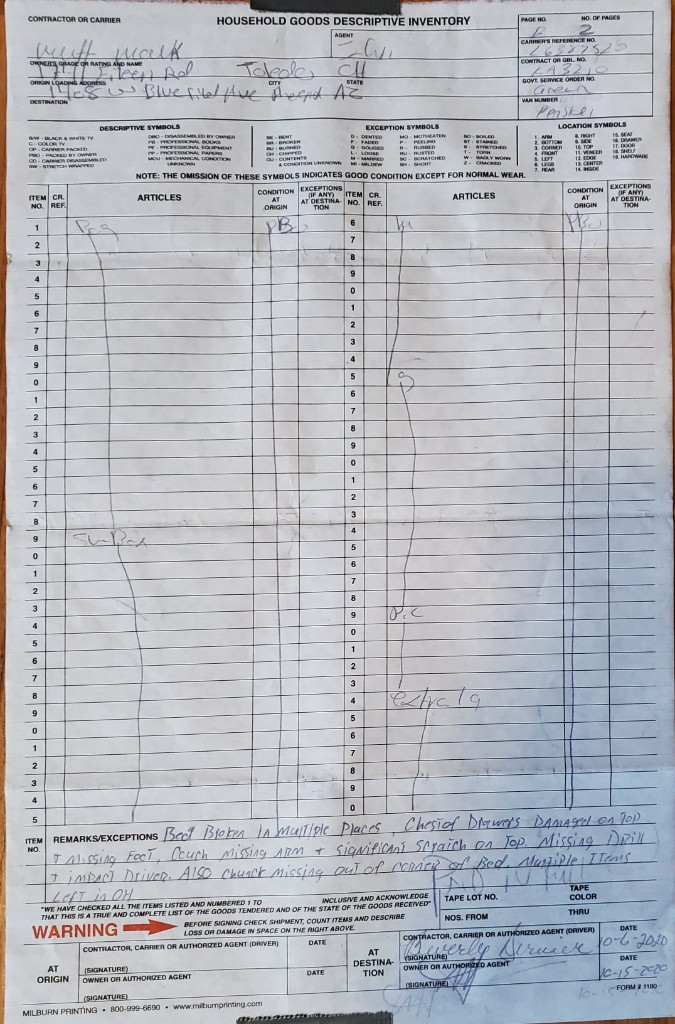 CONTRACTOR OR CARRIER
HOUSEHOLD GOODS DESCRIPTIVE INVENTORY
AGENT
PAGE NO. NO. OF PAGES
2
CARRIER'S REFERENCE NO.
OWNER'S GRADE OR RATING AND NAME
CONTRACT OR GBL. NO.
Toledo OH
ORIGIN LOADING ADDRESS CITY STATE
GOVT. SERVICE ORDER NO.
Green
AZ
DESTINATION
VAN NUMBER
DESCRIPTIVE SYMBOLS
EXCEPTION SYMBOLS
LOCATION SYMBOLS
B/W - BLACK & WHITE TV
C - COLOR TV
CP - CARRIER PACKED
PBO - PACKED BY OWNER
CD - CARRIER DISASSEMBLED
SW - STRETCH WRAPPED
DBO - DISASSEMBLED BY OWNER
PB - PROFESSIONAL BOOKS
PE - PROFESSIONAL EQUIPMENT
PP - PROFESSIONAL PAPERS
MCU - MECHANICAL CONDITION
UNKNOWN
BE - BENT
BR - BROKEN
BU - BURNED
CH - CHIPPED
CU - CONTENTS
& CONDITION UNKNOWN
D - DENTED
F - FADED
G - GOUGED
L - LOOSE
M - MARRED
MI - MILDEW
MO - MOTHEATEN
P - PEELING
R - RUBBED
RU - RUSTED
SC - SCRATCHED
SH - SHORT
SO - SOILED
ST - STAINED
S - STRETCHED
T - TORN
W - BADLY WORN
Z - CRACKED
1. ARM
2. BOTTOM
3. CORNER
4. FRONT
5. LEFT
6. LEGS
7. REAR
8. RIGHT
9. SIDE
10. TOP
11. VENEER
12. EDGE
13. CENTER
14. INSIDE
15. SEAT
16. DRAWER
17. DOOR
18. SHELF
19. HARDWARE
NOTE: THE OMISSION OF THESE SYMBOLS INDICATES GOOD CONDITION EXCEPT FOR NORMAL WEAR.
ITEM NO. CR. REF. ARTICLES CONDITION AT ORIGIN EXCEPTIONS (IF ANY) AT DESTINA-TION ITEM NO. CR. REF. ARTICLES CONDITION AT ORIGIN EXCEPTIONS (IF ANY) AT DESTINA-TION
1 6
2 7
3 8
4 9
5 0
6 1
7 2
8 3
9 4
0 5
1 6
2 7
3 8
4 9
5 0
6 1
7 2
8 3
9 4
0 5
1 6
2 7
3 8
4 9
5 0
6 1
7 2
8 3
9 4
0 5
1 6
2 7
3 8
4 9
5 0
ITEM NO. REMARKS/EXCEPTIONS Bed Broken in multiple Places, Chest of Drawers Damaged on Top
+ missing Foot, Couch missing Arm + significant scratch on Top. Missing Drill
+ impact Driver. Also chunck missing out of corner of Bed. Multiple Items
Left in OH
"WE HAVE CHECKED ALL THE ITEMS LISTED AND NUMBERED 1 TO INCLUSIVE AND ACKNOWLEDGE
THAT THIS IS A TRUE AND COMPLETE LIST OF THE GOODS TENDERED AND OF THE STATE OF THE GOODS RECEIVED"
TAPE LOT NO. TAPE COLOR
NOS. FROM THRU
WARNING BEFORE SIGNING CHECK SHIPMENT, COUNT ITEMS AND DESCRIBE
LOSS OR DAMAGE IN SPACE ON THE RIGHT ABOVE.
AT ORIGIN
CONTRACTOR, CARRIER OR AUTHORIZED AGENT (DRIVER) DATE
(SIGNATURE)
OWNER OR AUTHORIZED AGENT DATE
(SIGNATURE)
AT DESTINA-TION
CONTRACTOR, CARRIER OR AUTHORIZED AGENT (DRIVER) DATE
(SIGNATURE) 10-6-2020
OWNER OR AUTHORIZED AGENT DATE
10-15-2020
(SIGNATURE)
MILBURN PRINTING • 800-999-6690 • www.milburnprinting.com
FORM # 1100